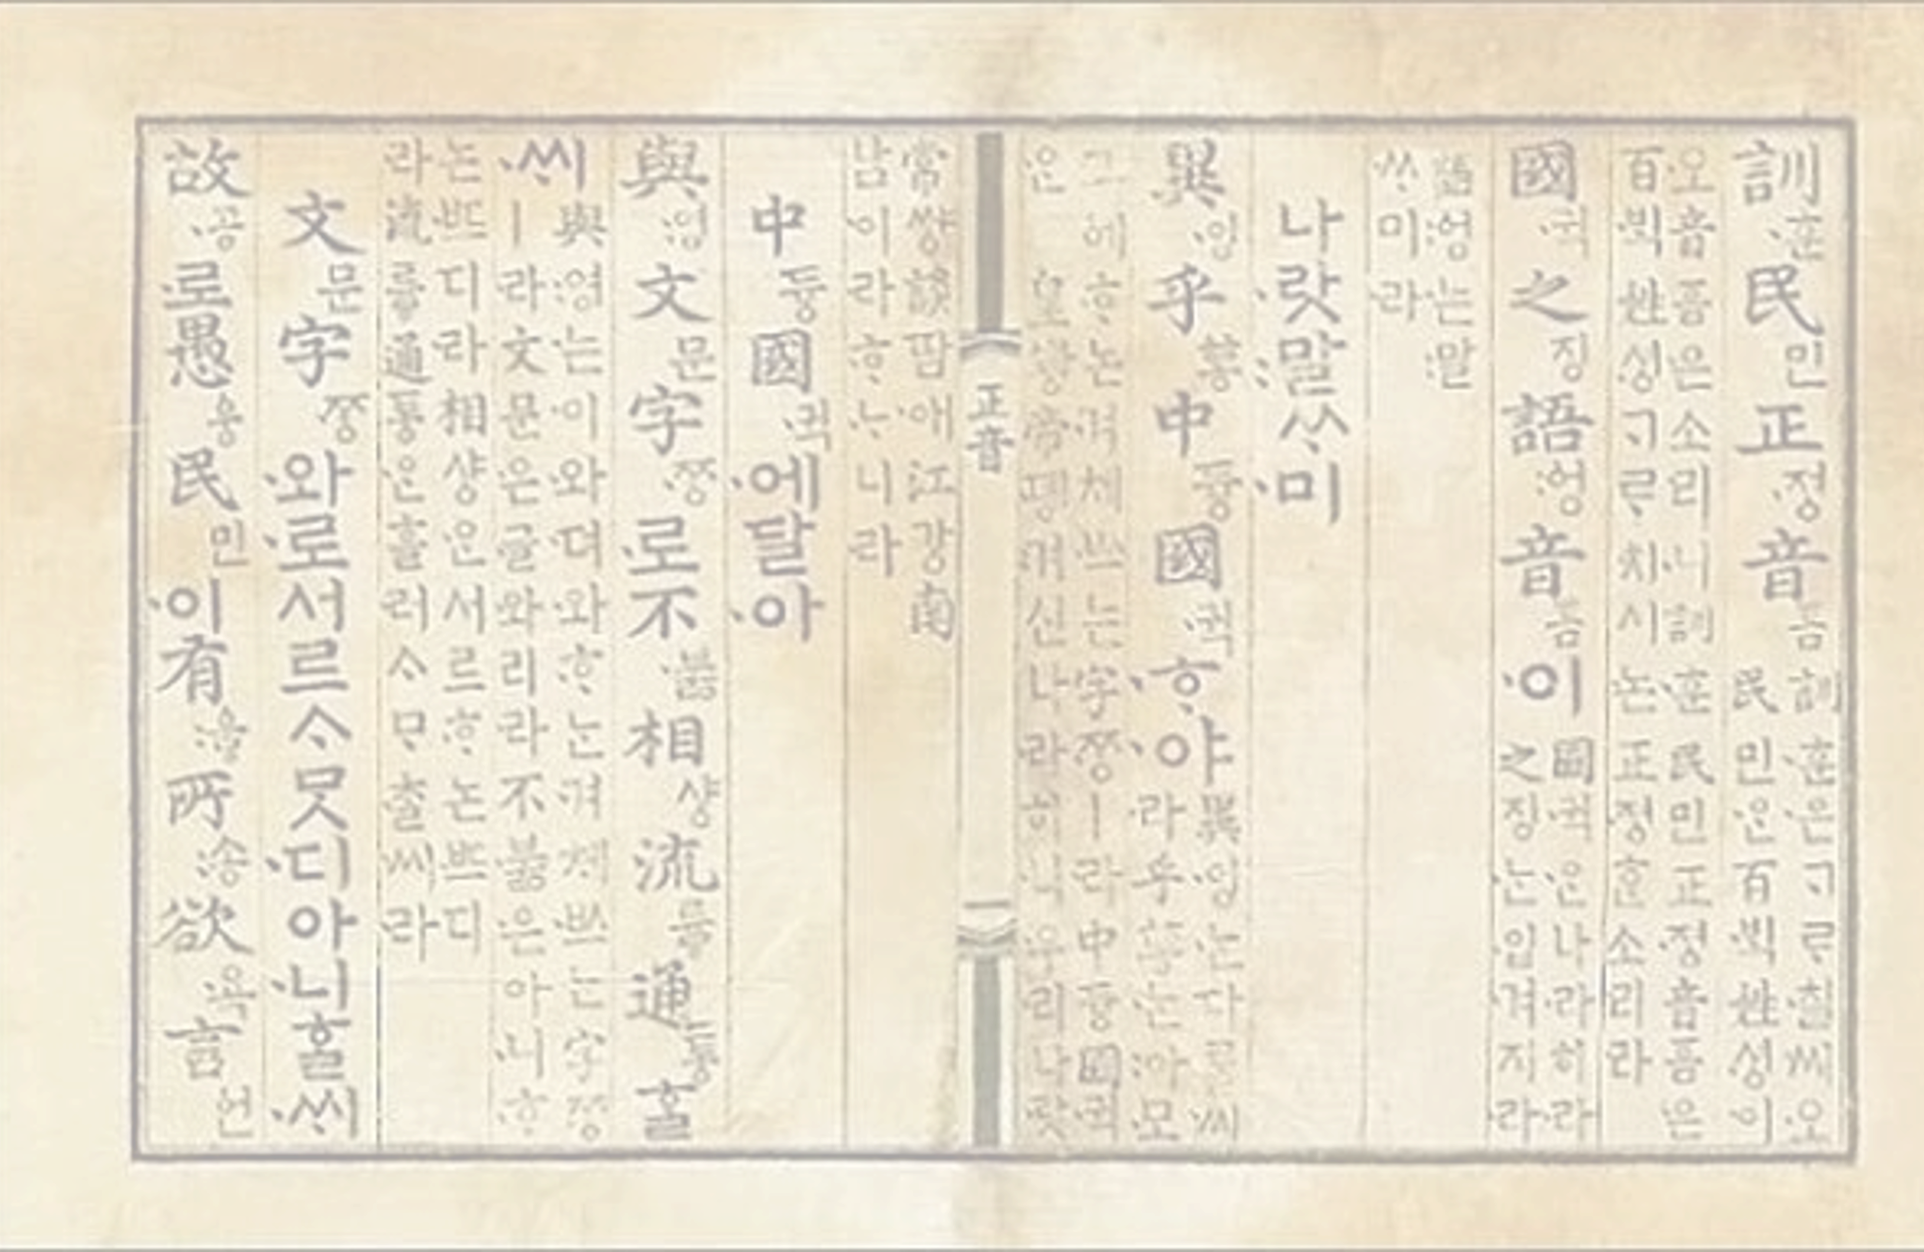 訓훈民민正져ᇰ音ᅙᅳᆷ
訓훈은ᄀᆞᄅᆞ칠씨오
民민ᄋᆞᆫ百ᄇᆡᆨ姓셔ᇰ이
오音ᅙᅳᆷ은소리니訓훈民민正져ᇰ音ᅙᅳᆷ은
百ᄇᆡᆨ姓셔ᇰᄀᆞᄅᆞ치시논正져ᇰᄒᆞᆫ소리라
國귁之징語ᅌᅥᆼ音ᅙᅳᆷ이
國귁ᄋᆞᆫ나라히라
之징ᄂᆞᆫ입겨지라
語ᅌᅥᆼ는말
ᄊᆞ미라
나랏말ᄊᆞ미
異잉乎ᅘᅩᆼ中듀ᇰ國귁ᄒᆞ야
異잉ᄂᆞᆫ다ᄅᆞᆯ씨
라乎ᅘᅩᆼᄂᆞᆫ아모
그에ᄒᆞ논겨체ᄡᅳ는字ᄍᆞᆼㅣ라中듀ᇰ國귁
ᄋᆞᆫ皇ᅘᅪᇰ帝뎽겨신나라히니우리나랏
正音 一
常쌰ᇰ談땀애江가ᇰ南
남이라ᄒᆞᄂᆞ니라
中듀ᇰ國귁에달아
與영文문字ᄍᆞᆼ로不부ᇙ相샤ᇰ流류ᇢ通토ᇰᄒᆞᆯ
ᄊᆡ
與영는이와뎌와ᄒᆞᄂᆞᆫ겨체ᄡᅳ는字ᄍᆞᆼ
ㅣ라文문은글와리라不부ᇙ은아니ᄒᆞ
논ᄠᅳ디라相샤ᇰᄋᆞᆫ서르ᄒᆞ논ᄠᅳ디
라流류ᇢ通토ᇰᄋᆞᆫ흘러ᄉᆞᄆᆞᄎᆞᆯ씨라
文문字ᄍᆞᆼ와로서르ᄉᆞᄆᆞᆺ디아니ᄒᆞᆯᄊᆡ
故공로愚ᅌᅮᆼ民민이有ᅌᅮᇢ所송欲욕言ᅌᅥᆫ